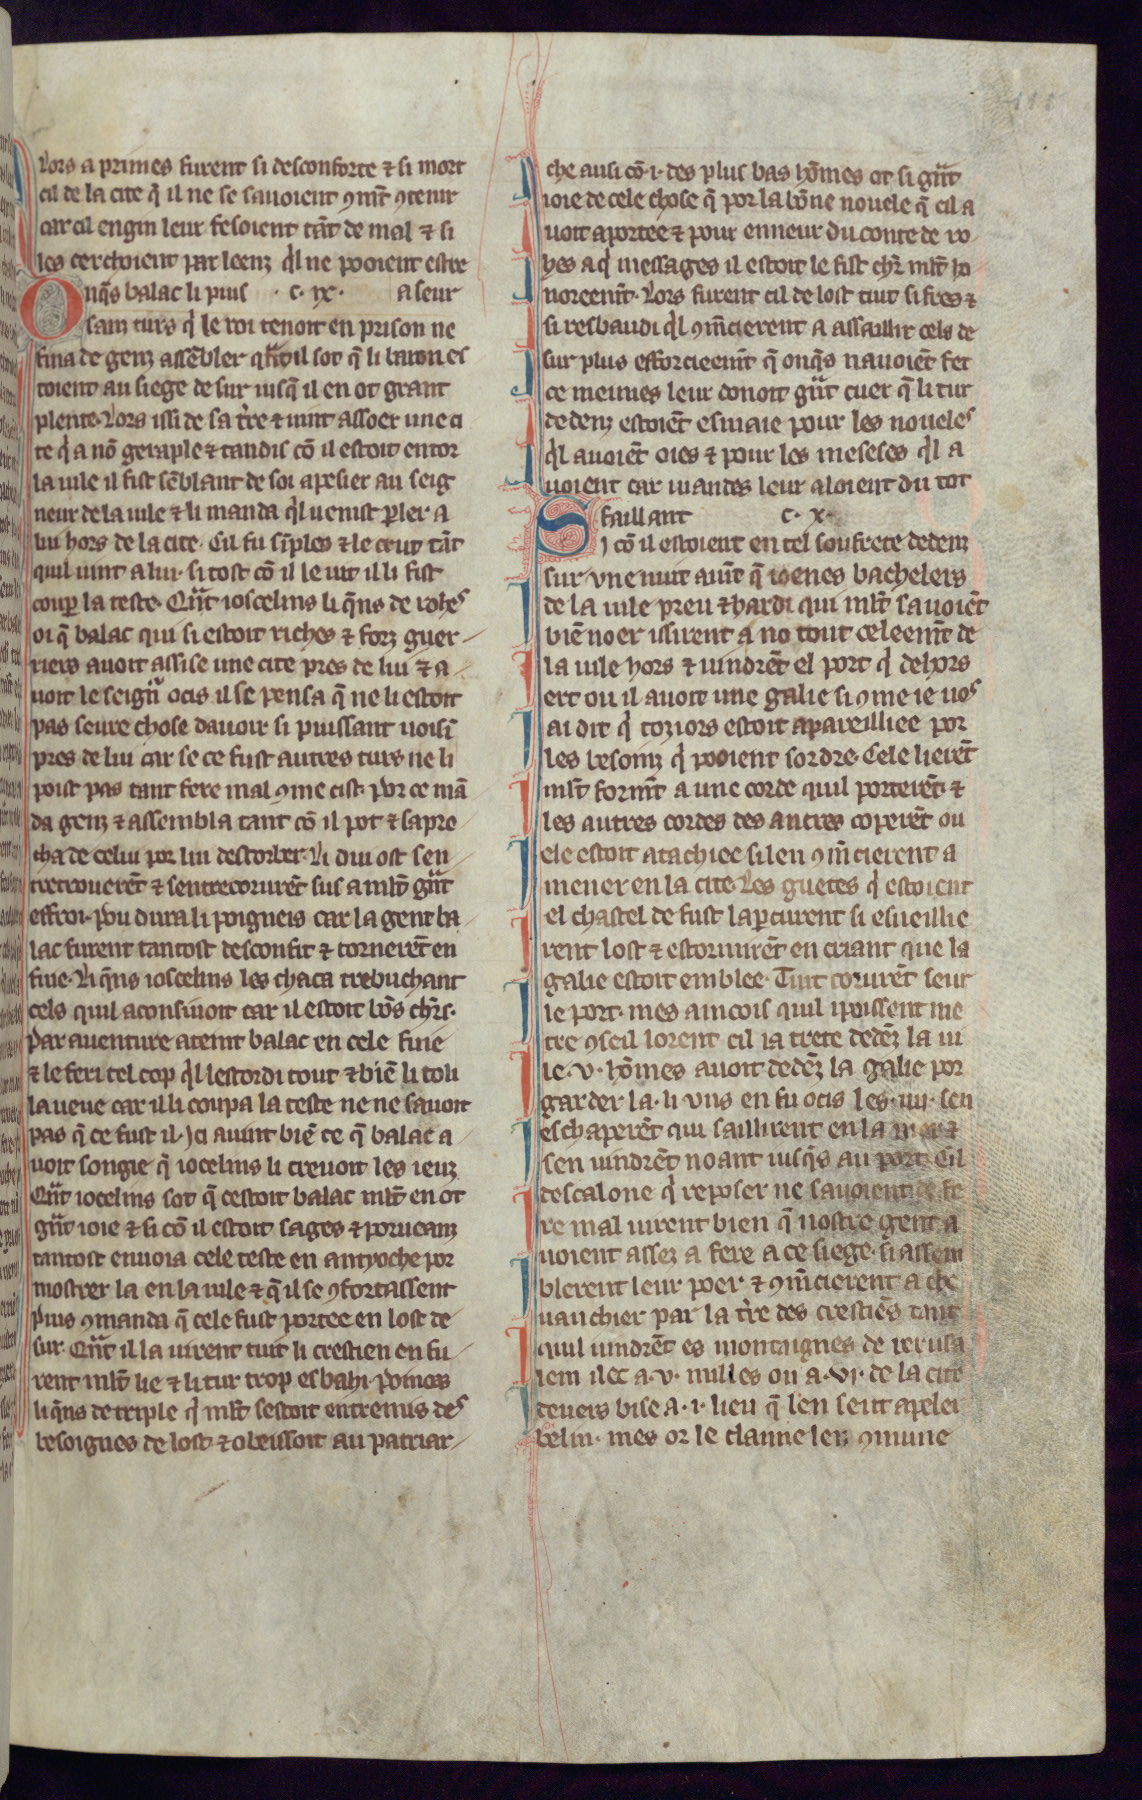 Lors a primes furent si desconforte ⁊ si mort
cil de la cite q̄ il ne se sauoient ꝯmt̄ ꝯtenir
car cil engin leur fesoient tāt de mal ⁊ si
les cerchoient par leenz q̓l ne pooient estre
Onq̄s balac li puis · c · ix · a seur
sam turs q̓ le roi tenoit en prison ne
fina de genz assēbler q̄nt il sot q̄ li baron es
toient au siege de sur iusq̄ il en ot grant
plente. Lors issi de sa t̄re ⁊ uint assoer une ci
te q̓ a nō geraple ⁊ tandis cō il estoit entor
la uile il fist sēblant de soi apesier au seig
neur de la uile ⁊ li manda q̓l uenist ꝑler a
lui hors de la cite. Cil fu sīples ⁊ le crut tāt
quil uint a lui. si tost cō il le uit il li fist
couꝑ la teste. Qn̄t ioscelins li q̄ns de rohes
oi q̄ balac qui si estoit riches ⁊ forz guer
riers auoit assise une cite pres de lui ⁊ a
uoit le seignr̄ ocis il se pensa q̄ ne li estoit
pas seure chose dauoir si puissant uoisī
pres de lui car se ce fust autres turs ne li
poist pas tant fere mal ꝯme cist. por ce mā
da genz ⁊ assembla tant cō il pot ⁊ sapro
cha de celui por lui destorber. Li dui ost sen
tretrouerēt ⁊ sentrecorurēt sus a mlt̄ gn̄t
effroi. Pou dura li poigneis car la gent ba
lac furent tantost desconfit ⁊ tornerēt en
fuie. Li q̄ns ioscelins les chaca trebuchant
cels quil aconsiuoit car il estoit bōs chr̄s.
Par auenture ateint balac en cele fuie
⁊ le feri tel cop q̓l lestordi tout ⁊ biē li toli
la ueue car il li coupa la teste ne ne sauoit
pas q̄ ce fust il. Ici auint biē ce q̄ balac a
uoit songie q̄ iocelins li creuoit les ieuz
Qn̄t iocelins sot q̄ cestoit balac mlt̄ en ot
gn̄t ioie ⁊ si cō il estoit sages ⁊ porueanz
tantost enuoia cele teste en antyoche por
mostrer la en la uile ⁊ q̄ il se ꝯfortassent
Puis ꝯmanda q̄ cele fust portee en lost de
sur. Qn̄t il la uirent tuit li crestien en fu
rent mlt̄ lie ⁊ li tur trop esbahi. Poinces
li q̄ns de triple q̓ mlt̄ sestoit entremis des
besoignes de lost ⁊ obeissoit au patriar
che ausi cō .i. des plus bas hōmes ot si gn̄t
ioie de cele chose q̄ por la bōne nouele q̄ cil a
uoit aportee ⁊ pour enneur du conte de ro
hes a q̓ messages il estoit le fist chr̄ mlt̄ ho
noreemt̄. Lors furent cil de lost tuit si fres ⁊
si resbaudi q̓l ꝯmēcierent a assaillir cels de
sur plus efforcieemt̄ q̄ onq̄s nauoiēt fet
ce meimes leur donoit gn̄t cuer q̄ li tur
dedenz estoiēt esmaie pour les noueles
q̓l auoiēt oies ⁊ pour les meseses q̓l a
uoient car uiandes leur aloient du tot
faillant c · x ·
Si cō il estoient en tel soufrete dedenz
sur vne nuit auīt q̄ ioenes bachelers
de la uile preu ⁊ hardi qui mlt̄ sauoiēt
biē noer issirent a no tout celeemt̄ de
la uile hors ⁊ uindrēt el port q̓ dehors
ert ou il auoit une galie si ꝯme ie uos
ai dit q̓ toziors estoit apareilliee por
les besoinz q̓ pooient sordre. Cele lierēt
mlt̄ formt̄ a une corde quil porterēt ⁊
les autres cordes des ancres coperēt ou
ele estoit atachiee si len ꝯmēcierent a
mener en la cite. Les guetes q̓ estoient
el chastel de fust laꝑcurent si esueillie
rent lost ⁊ estormirēt en criant que la
galie estoit emblee. Tuit corurēt seur
le port. mes aincois quil i poissent me
tre ꝯseil lorent cil ia trete dedēz la ui
le .v. hōmes auoit dedēz la galie por
garder la. li vns en fu ocis les .iiii. sen
eschaperēt qui saillirent en la mer ⁊
sen uindrēt noant iusq̄s au port. Cil
descalone q̓ reposer ne sauoient de fe
re mal uirent bien q̄ nostre gent a
uoient assez a fere a ce siege. si assem
blerent leur poer ⁊ ꝯmēcierent a che
uauchier par la t̄re des crestiēs tant
quil uindrēt es montaignes de ierusa
lem ilec a .v. milles ou a .vi. de la cite
deuers bise a .i. lieu q̄ len seut apelei
belin. mes or le claime len ꝯmune